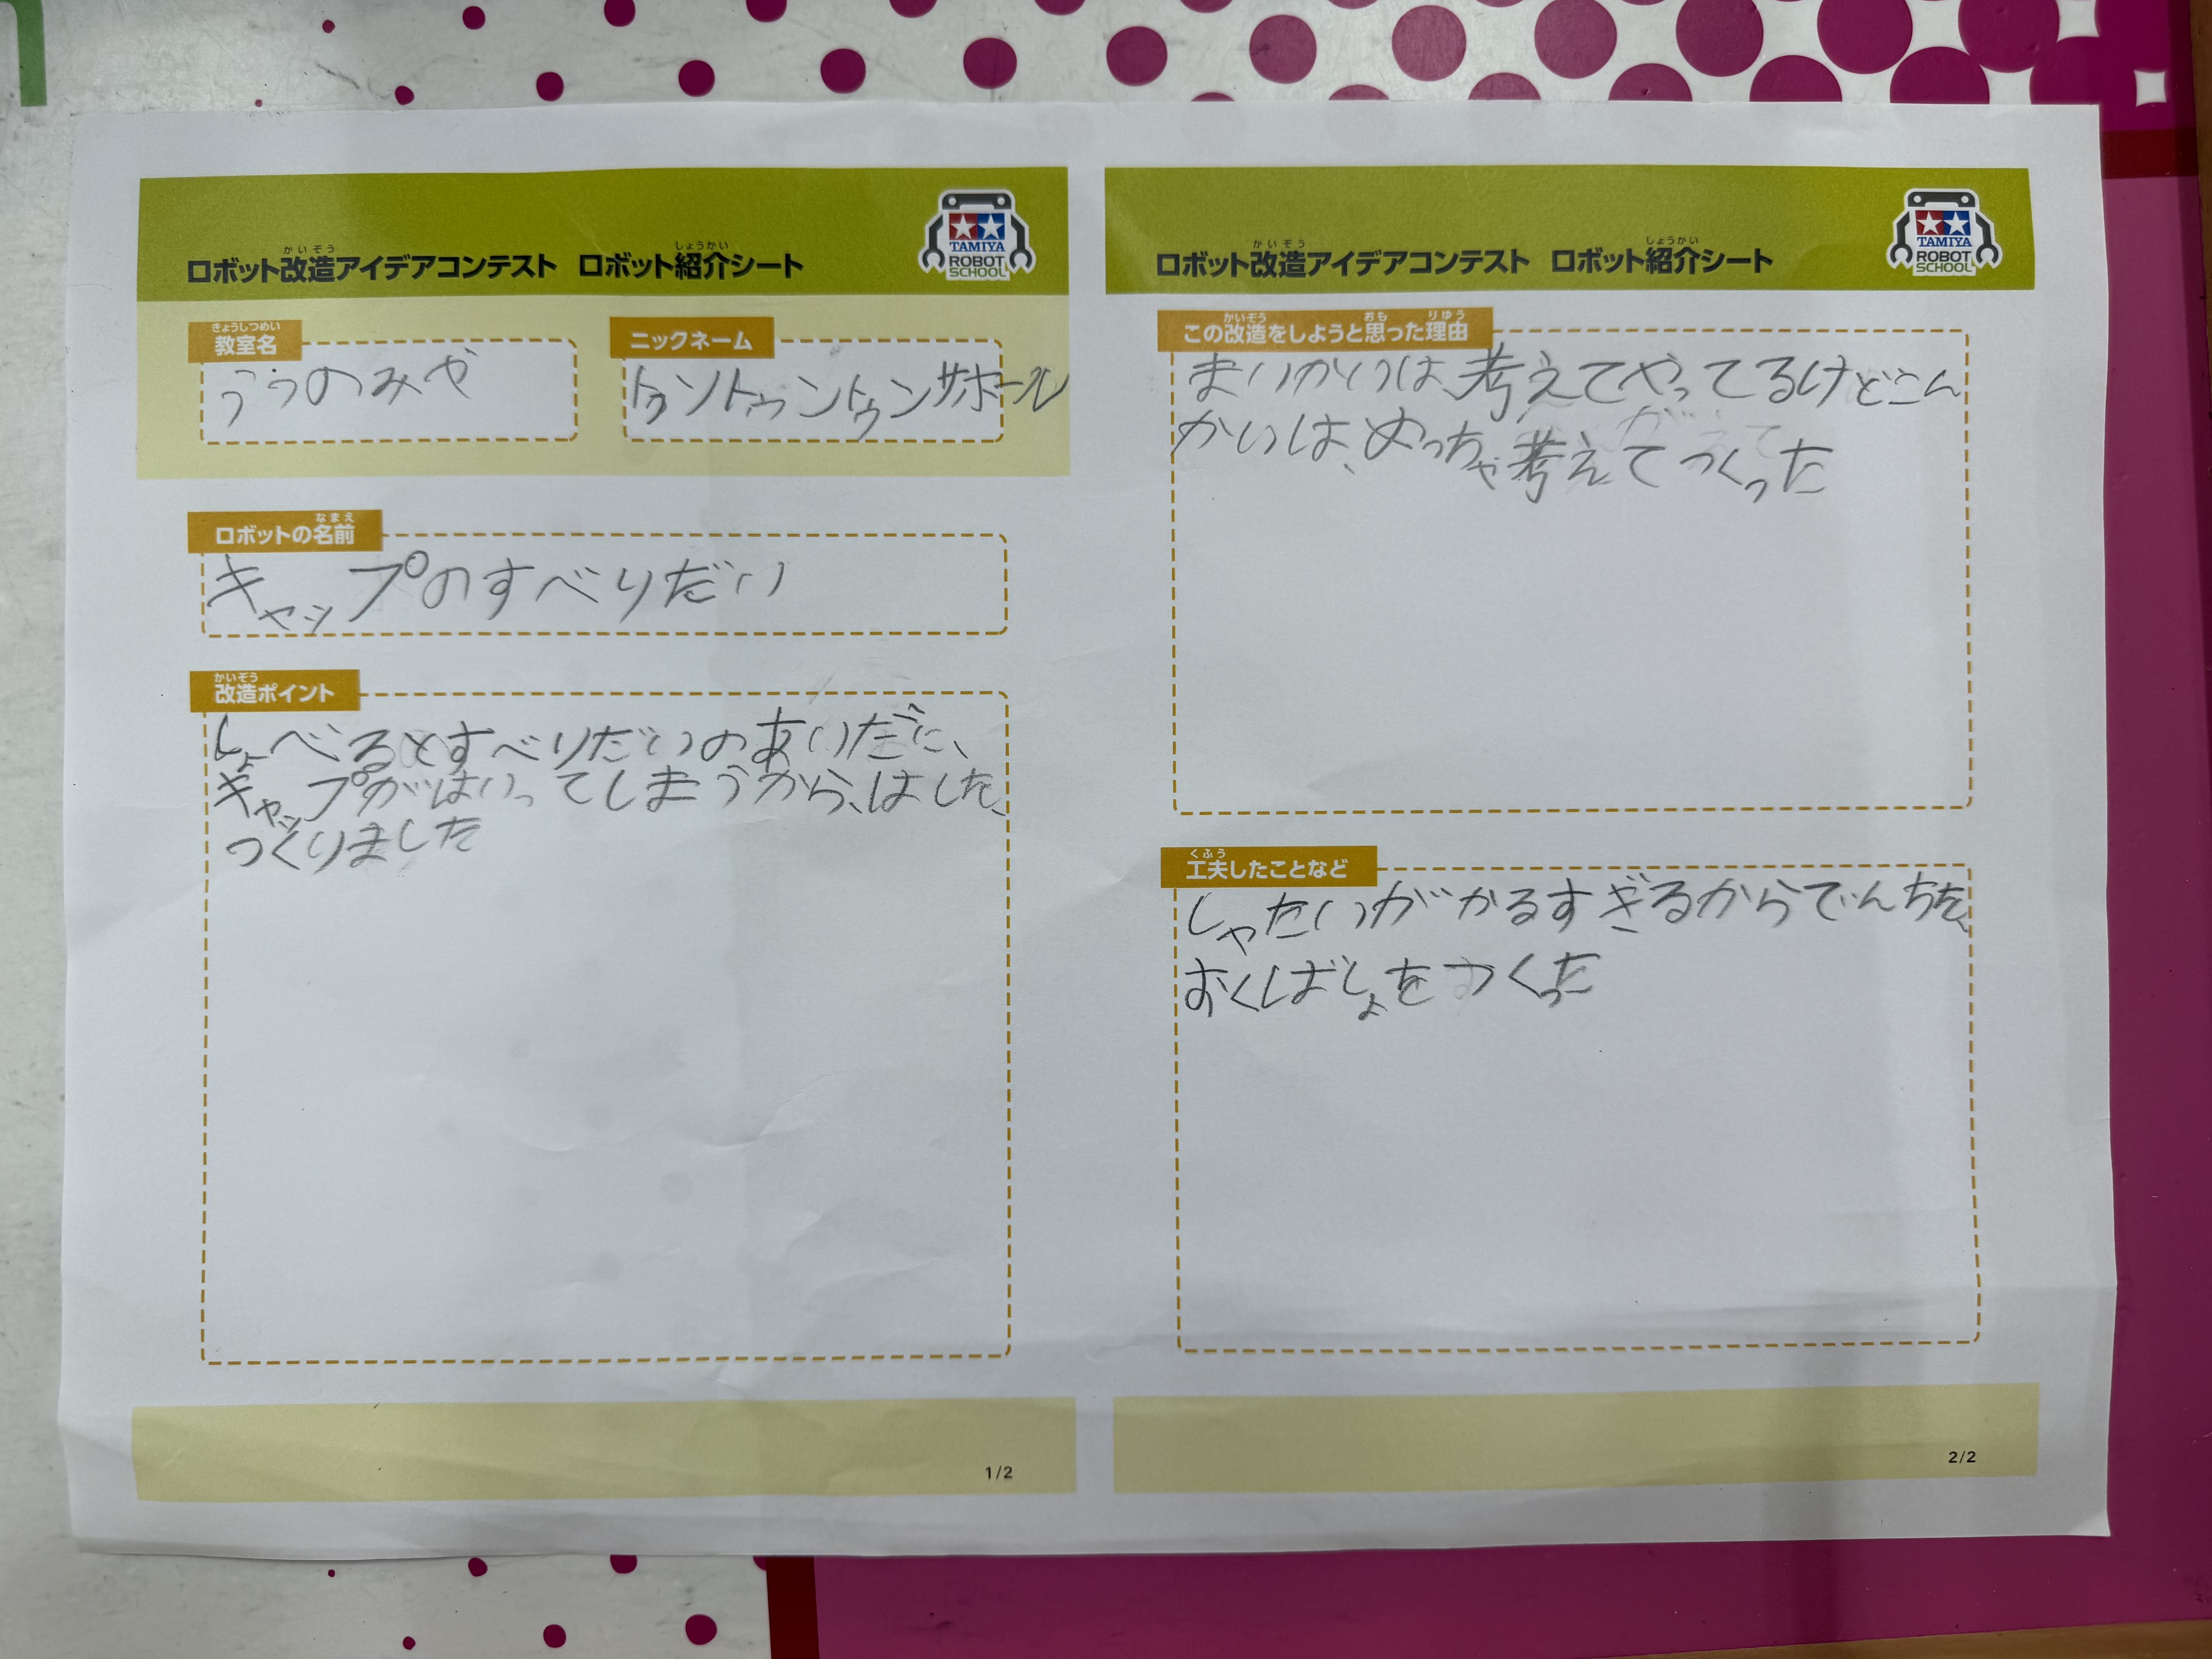 ロボット改造アイデアコンテスト ロボット紹介シート
かいぞう
しょうかい
TAMIYA
ROBOT
SCHOOL
きょうしつめい
教室名
うつのみや
ニックネーム
トゥントゥントゥンサホール
なまえ
ロボットの名前
キャップのすべりだい
かいぞう
改造ポイント
しょべるとすべりだいのあいだに、
キャップがはいってしまうから、はした、
つくりました
1/2
かいぞう
しょうかい
ロボット改造アイデアコンテスト ロボット紹介シート
TAMIYA
ROBOT
SCHOOL
かいぞう
おも
りゆう
この改造をしようと思った理由
まいかいは、考えてやってるけどこん
かいは、めっちゃ考えてつくった
くふう
工夫したことなど
しゃたいがかるすぎるからでんちを、
おくばしょをつくった
2/2